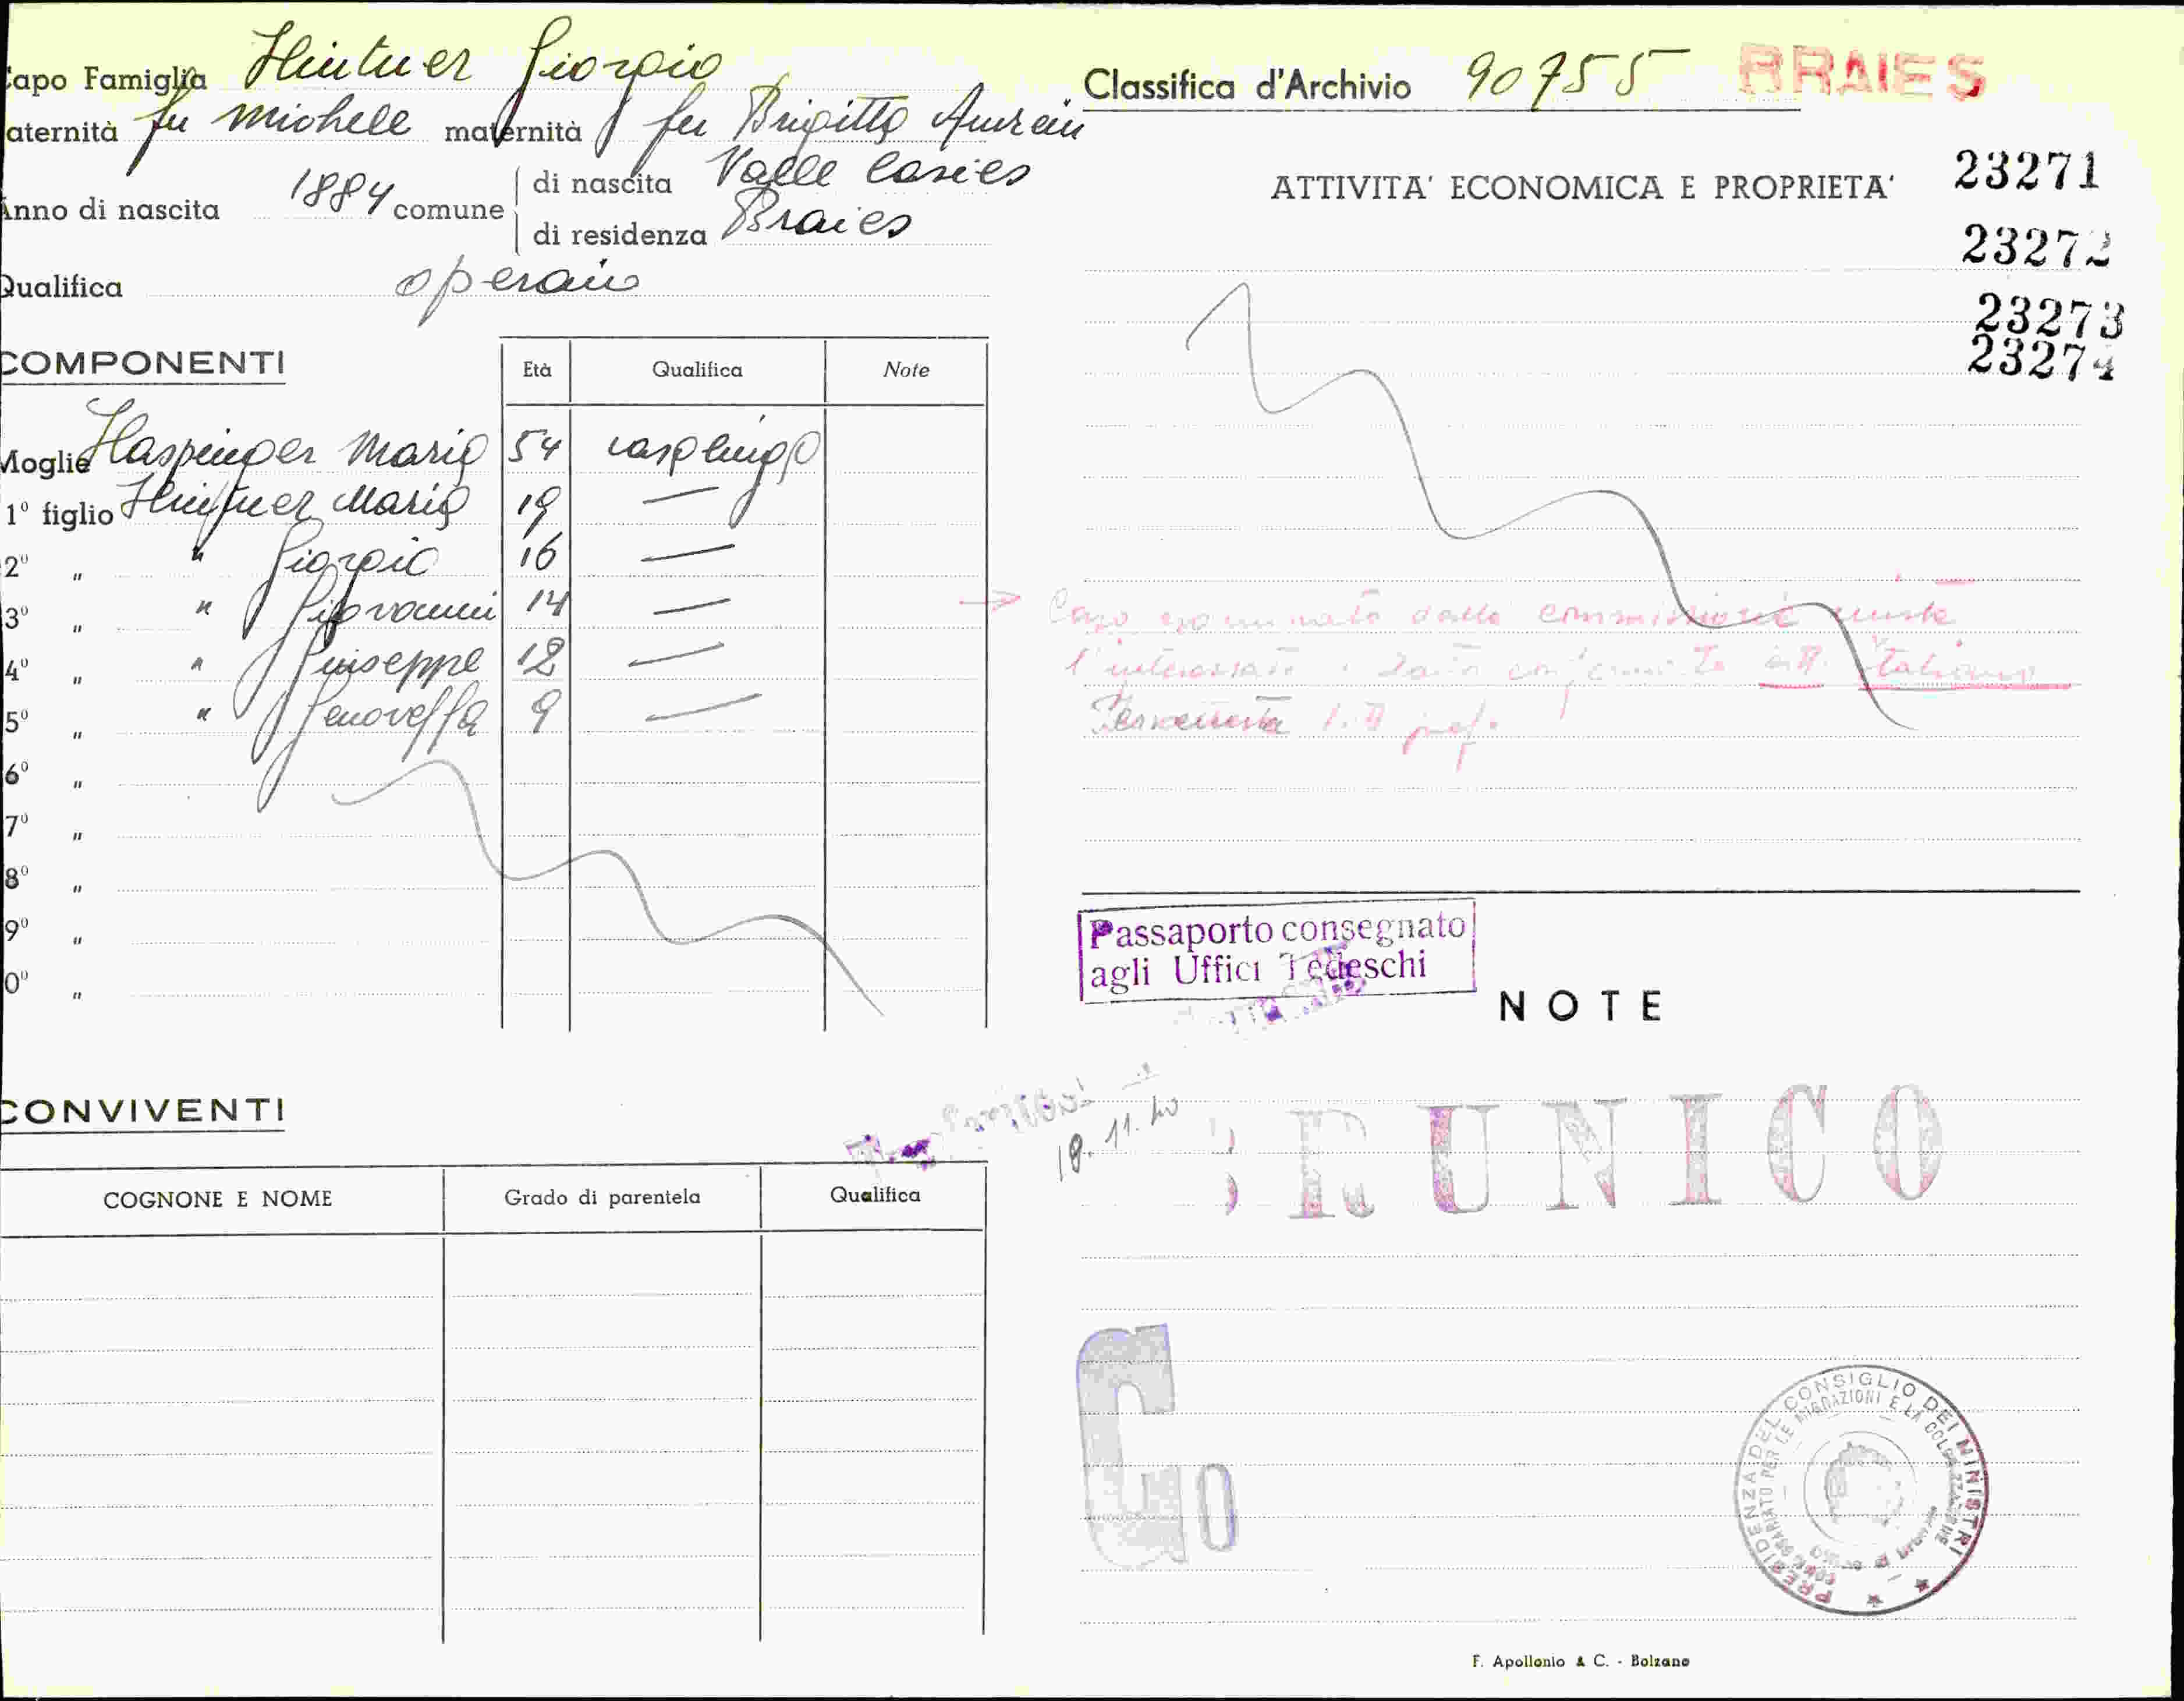 Capo Famiglia Hintner Giorgio
aternità fu Michele maternità fu Brigitta
Anno di nascita 1884 comune di nascita Valle Casies
di residenza Braies
Qualifica operaio
COMPONENTI
Età Qualifica Note
Moglie Haspinger Maria 54 casalinga
1º figlio Hintner Maria 19 —
2º " " Giorgio 16 —
3º " " Giovanni 14 —
4º " " Giuseppe 12 —
5º " " Genoveffa 9 —
6º "
7º "
8º "
9º "
0º "
CONVIVENTI
COGNONE E NOME Grado di parentela Qualifica
Classifica d'Archivio 90755 BRAIES
ATTIVITA' ECONOMICA E PROPRIETA'
23271
23272
23273
23274
Caso esaminato dalla commissione mista
l'interessato è stato confermato italiano
Passaporto consegnato
agli Uffici Tedeschi
NOTE
19.11.40
BRUNICO
G0
PRESIDENZA DEL CONSIGLIO DEI MINISTRI
COMMISSARIATO PER LE MIGRAZIONI E LA COLONIZZAZIONE
F. Apollonio & C. - Bolzano